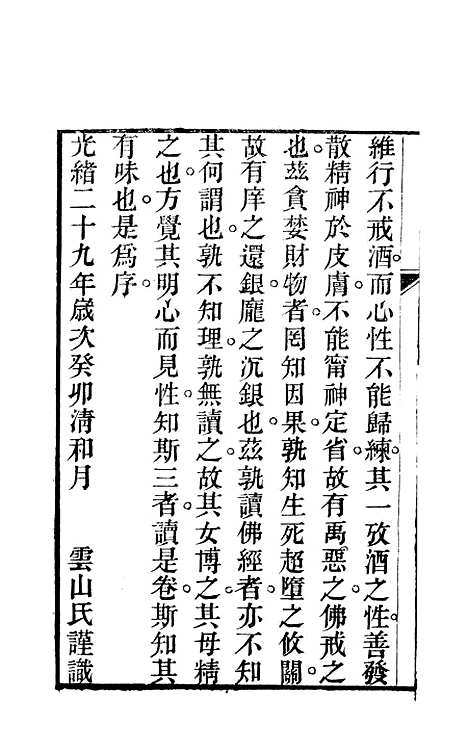 維行不戒酒而心性不能歸練其一攷酒之性善發
散精神於皮膚不能甯神定省故有禹惡之佛戒之
也茲貪婪財物者罔知因果孰知生死超墮之攸關
故有庠之還銀龐之沉銀也茲孰讀佛經者亦不知
其何謂也孰不知理孰無讀之故其女博之其母精
之也方覺其明心而見性知斯三者讀是卷斯知其
有味也是爲序
光緒二十九年歲次癸卯清和月 雲山氏謹識